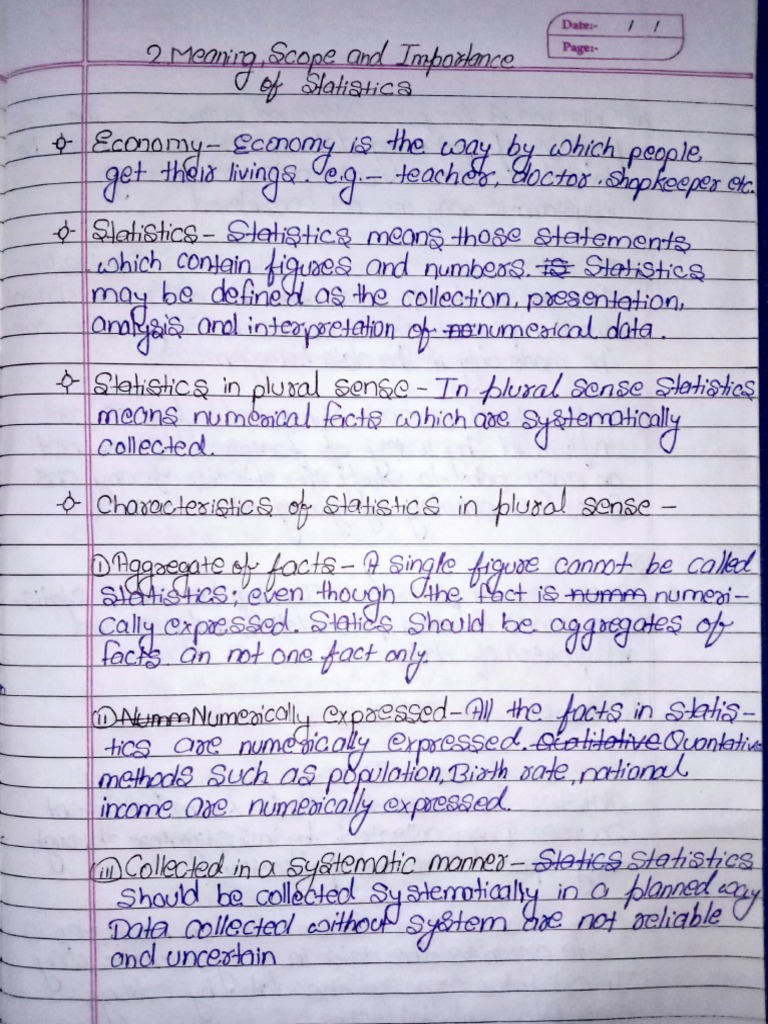 Date:- / /
Page:-
2 Meaning, Scope and Importance
of Statistics
Economy - Economy is the way by which people
get their livings. e.g.- teacher, doctor. Shopkeeper etc.
Statistics - Statistics means those statements
which contain figures and numbers. is Statistics
may be defined as the collection, presentation,
analysis and interpretation of no numerical data.
Statistics in plural sense - In plural sense Statistics
means numerical facts which are systematically
collected.
Characteristics of Statistics in plural sense -
i) Aggregate of facts - A single figure cannot be called
Statistics; even though the fact is numm numeri-
cally expressed. Statics Should be aggregates of
facts an not one fact only.
ii) Numm Numerically expressed - All the facts in statis-
tics are numerically expressed. Qualitative Quantative
methods Such as population, Birth rate, national
income are numerically expressed.
iii) Collected in a systematic manner - Statics Statistics
Should be collected Systematically in a planned way
Data collected without system are not reliable
and uncertain